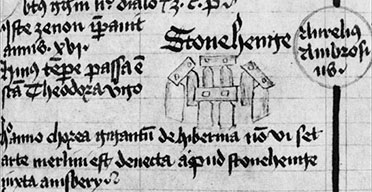 Iste zenon ip̄auit
annis. xvi.
Huius tēpe passa ē
sc̄a Theodora v̾go
Stonehenge
Aurelius
Ambrosi
us.
anno chorea gigantū de hibernia nō vi set
arte merlini est deuecta apud stonehenge
iuxta amsbery